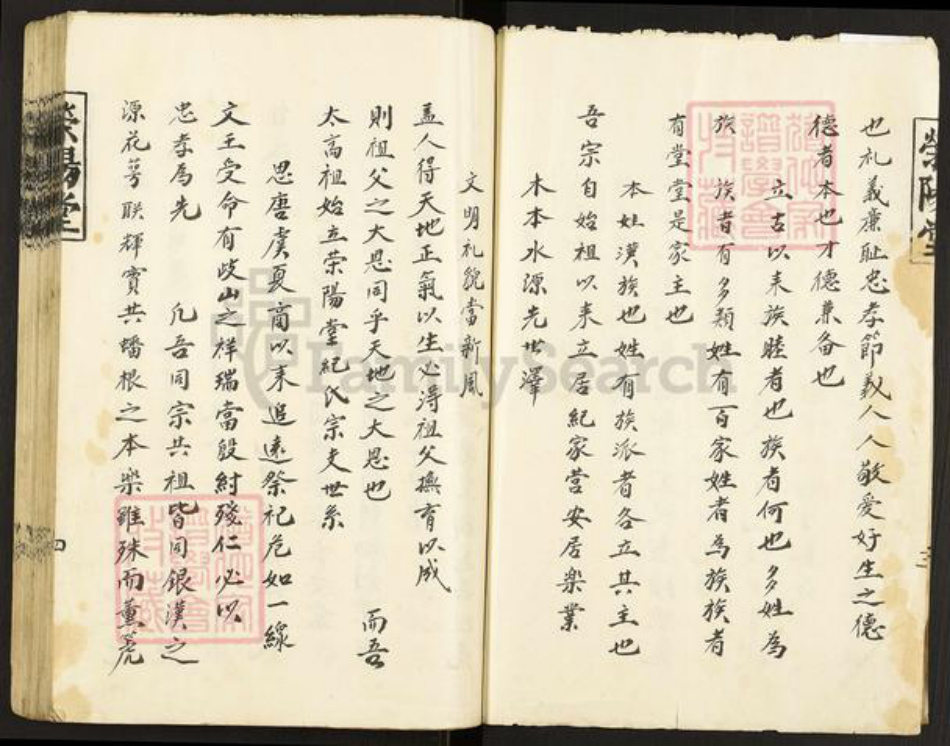 也礼義廉耻忠孝節義人人敬爱好生之德
德者本也才德兼备也
立古以来族睦者也族者何也多姓為
族 族者有多類姓有百家姓者為族族者
有堂堂是家主也
本姓漢族也姓有族派者各立其主也
吾宗自始祖以来立居紀家营安居楽業
木本水源先世澤
文明礼貌當新風
盖人得天地正氣以生必得祖父撫育以成
則祖父之大恩同乎天地之大恩也 而吾
太高祖始立荣陽堂紀氏宗支世系
思唐虞夏商以来追遠祭祀危如一線
文王受命有歧山之祥瑞當殷紂殘仁必以
忠孝為先 凡吾同宗共祖皆同銀漢之
源花萼联輝實共蟠根之本枼雖殊而薰
荣陽堂
三
四
FamilySearch